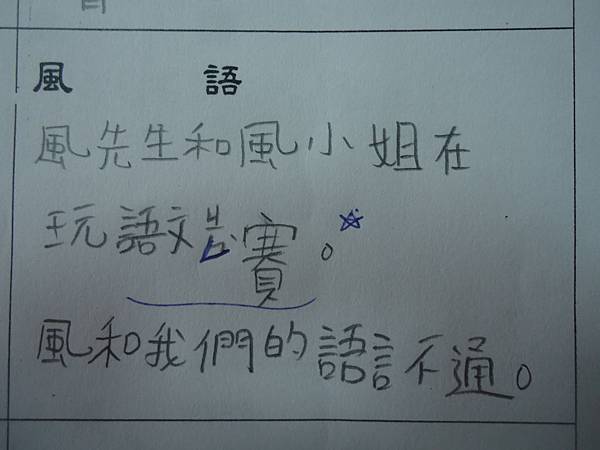 風 語
風先生和風小姐在
玩語文賽。☆
風和我們的語言不通。